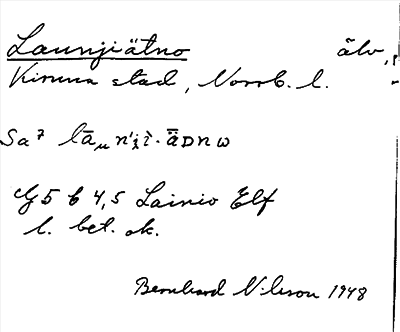 Launjiätno älv,
Kiruna stad, Norrb. l.
Sa⁷ lāμ n'i ì·ǟDnω
G5 b 4,5 Lainio Elf
l. bet. ok.
Bernhard Nilsson 1948